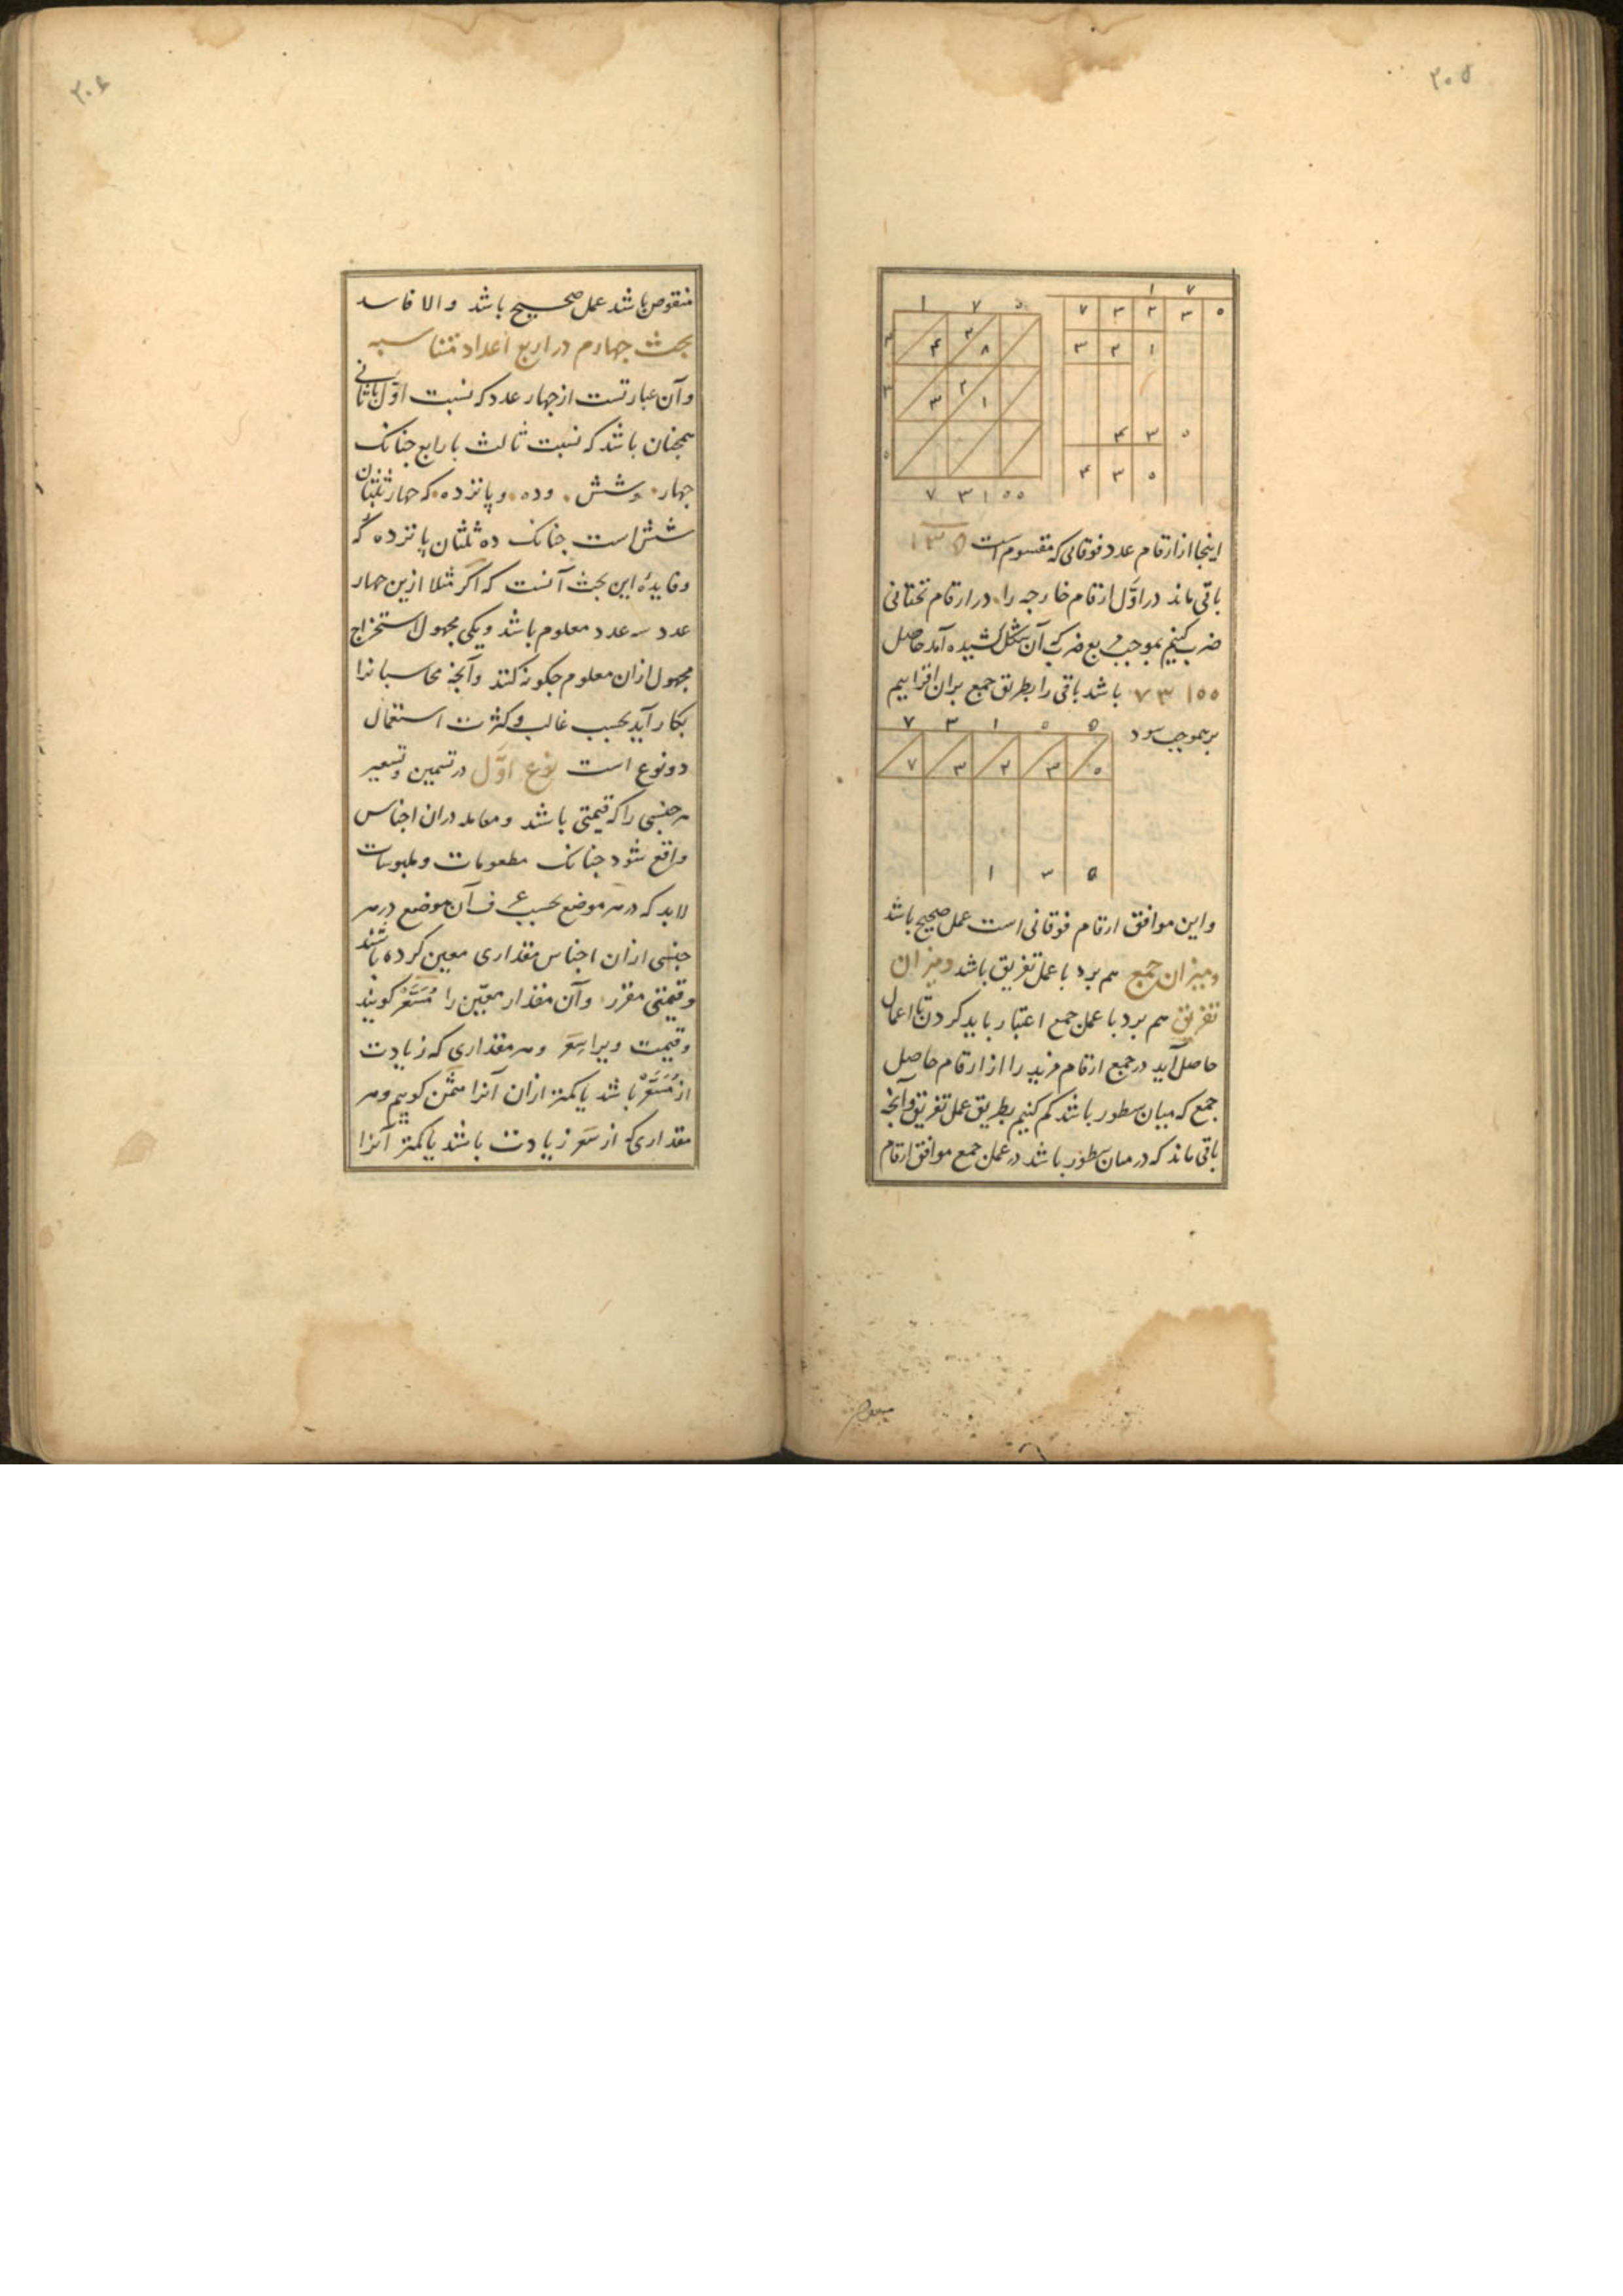 ۳۰۵
۱ ۷
۷ ۳ ۲ ۳ ۵
۳ ۲ ۱
۴ ۳ ۵
۴ ۳ ۵
۱ ۷ ۵
۴ ۲ ۸
۳ ۳ ۲ ۱
۵
۷ ۳ ۱ ۵ ۵
اینجا از ارقام عدد فوقانی که مقسوم است ۱۳۵
باقی ماند در اوّل ارقام خارجه را در ارقام تحتانی
ضرب کنیم بموجب ضرب که آن شکل کشیده آمد حاصل
۷۳۱۵۵ باشد باقی را بطریق جمع بران افزاییم
برموجب
۷ ۳ ۱ ۵ ۵
۷ ۳ ۲ ۳ ۵
۱ ۳ ۵
و این موافق ارقام فوقانی است عمل صحیح باشد
و میزان جمع هم برد با عمل تفریق باشد و میزان
تفریق هم برد با عمل جمع اعتبار باید کردن تا اعمال
حاصل آید در جمع ارقام مزید را از ارقام حاصل
جمع که میان سطور باشد کم کنیم بطریق عمل تفریق و آنچه
باقی ماند که در میان سطور باشد در عمل جمع موافق ارقام
۳۰۶
منقوص باشد عمل صحیح باشد و الا فاسد
بحث جهارم در اربع اعداد متناسبه
و آن عبارتست از جهار عدد که نسبت اوّل با ثانی
همجنان باشد که نسبت ثالث با رابع جنانک
جهار و شش و ده و پانزده که جهار ثلثان
شش است جنانک ده ثلثان پانزده که
و فایدهٔ این بحث آنست که اگر مثلا ازین جهار
عدد سه عدد معلوم باشد و یکی مجهول استخراج
مجهول ازان معلوم جکونه کنند و آنجه محاسبانرا
بکار آید بحسب غالب و کثرت استعمال
دو نوع است نوع اوّل در تثمین و تسعیر
هر جنسی را که قیمتی باشد و معامله دران اجناس
واقع شود جنانک مطعومات و ملبوسات
لابد که در هر موضع بحسب عرف آن موضع در هر
جنسی ازان اجناس مقداری معین کرده باشند
و قیمتی مقرر و آن مقدار معیّن را مُسَعَّر کویند
و قیمت ویرا سِعَر و هر مقداری که زیادت
از مُسَعَّر باشد یا کمتر ازان آنرا مثمَّن کوییم و هر
مقداری که از سعر زیادت باشد یا کمتر آنرا